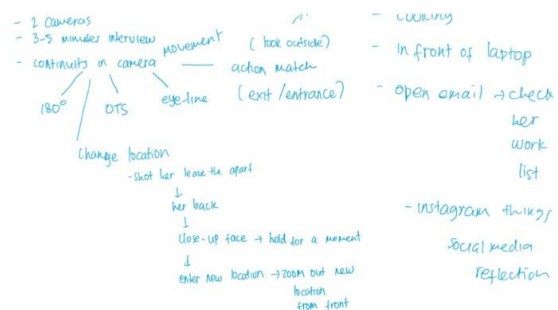 - 2 cameras
- 3-5 minutes interview
- continuits in camera movement
(look outside)
action match
(exit/entrance)
180°
OTS
eye-line
change location
- shot her leave the apart
↓
her back
↓
close-up face → hold for a moment
↓
enter new location → zoom out new
location
from front
- cooking
- in front of laptop
- open email → check
her
work
list
- instagram things/
social media
reflection